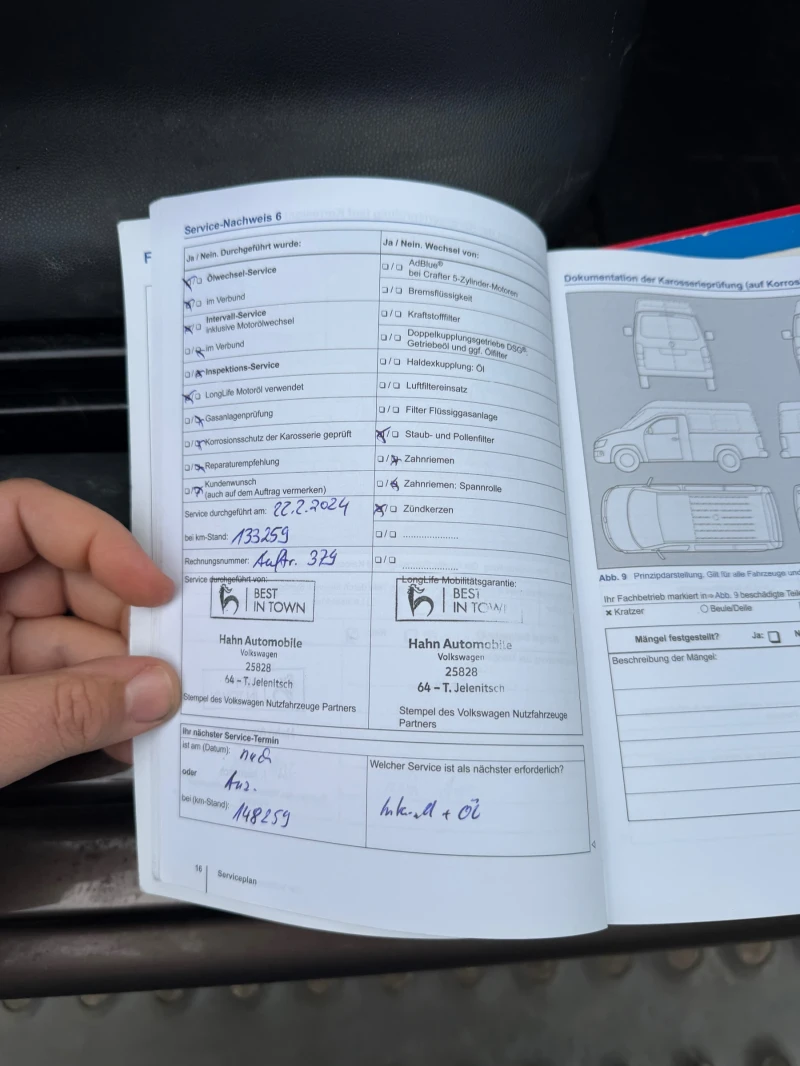 Service-Nachweis 6
Ja / Nein. Durchgeführt wurde:
Ölwechsel-Service
im Verbund
Intervall-Service
inklusive Motorölwechsel
im Verbund
Inspektions-Service
LongLife Motoröl verwendet
Gasanlagenprüfung
Korrosionsschutz der Karosserie geprüft
Reparaturempfehlung
Kundenwunsch
(auch auf dem Auftrag vermerken)
Service durchgeführt am: 22.2.2024
bei km-Stand: 133259
Rechnungsnummer: Auftr. 379
Service durchgeführt von:
BEST
IN TOWN
Hahn Automobile
Volkswagen
25828
64 – T. Jelenitsch
Stempel des Volkswagen Nutzfahrzeuge Partners
Ja / Nein. Wechsel von:
AdBlue®
bei Crafter 5-Zylinder-Motoren
Bremsflüssigkeit
Kraftstofffilter
Doppelkupplungsgetriebe DSG®:
Getriebeöl und ggf. Ölfilter
Haldexkupplung: Öl
Luftfiltereinsatz
Filter Flüssiggasanlage
Staub- und Pollenfilter
Zahnriemen
Zahnriemen: Spannrolle
Zündkerzen
LongLife Mobilitätsgarantie:
BEST
IN TOWN
Hahn Automobile
Volkswagen
25828
64 – T. Jelenitsch
Stempel des Volkswagen Nutzfahrzeuge
Partners
Ihr nächster Service-Termin
ist am (Datum): nach
oder Anz.
bei (km-Stand): 148259
Welcher Service ist als nächster erforderlich?
+ Öl
16 Serviceplan
Dokumentation der Karosserieprüfung (auf Korros
Abb. 9 Prinzipdarstellung. Gilt für alle Fahrzeuge und
Ihr Fachbetrieb markiert in ⇒ Abb. 9 beschädigte Teil
× Kratzer
Beule/Delle
Mängel festgestellt?
Ja:
N
Beschreibung der Mängel: